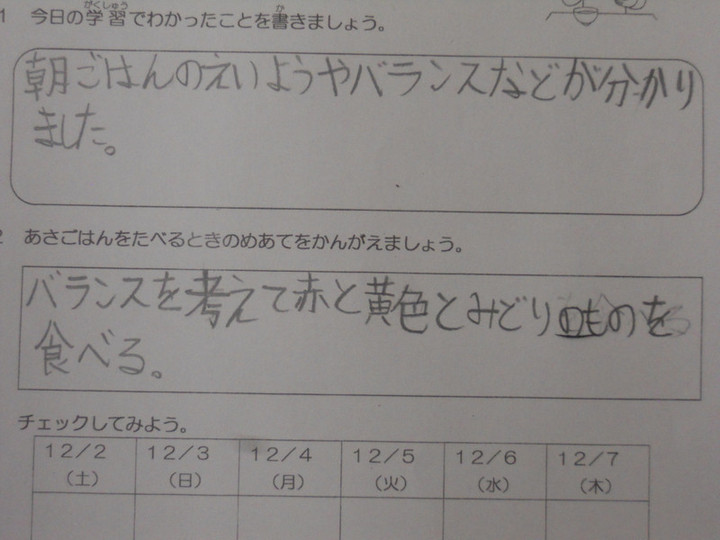 1 今日の学習でわかったことを書きましょう。
朝ごはんのえいようやバランスなどが分かり
ました。
2 あさごはんをたべるときのめあてをかんがえましょう。
バランスを考えて赤と黄色とみどりのものを
食べる。
チェックしてみよう。
12/2 12/3 12/4 12/5 12/6 12/7
(土) (日) (月) (火) (水) (木)